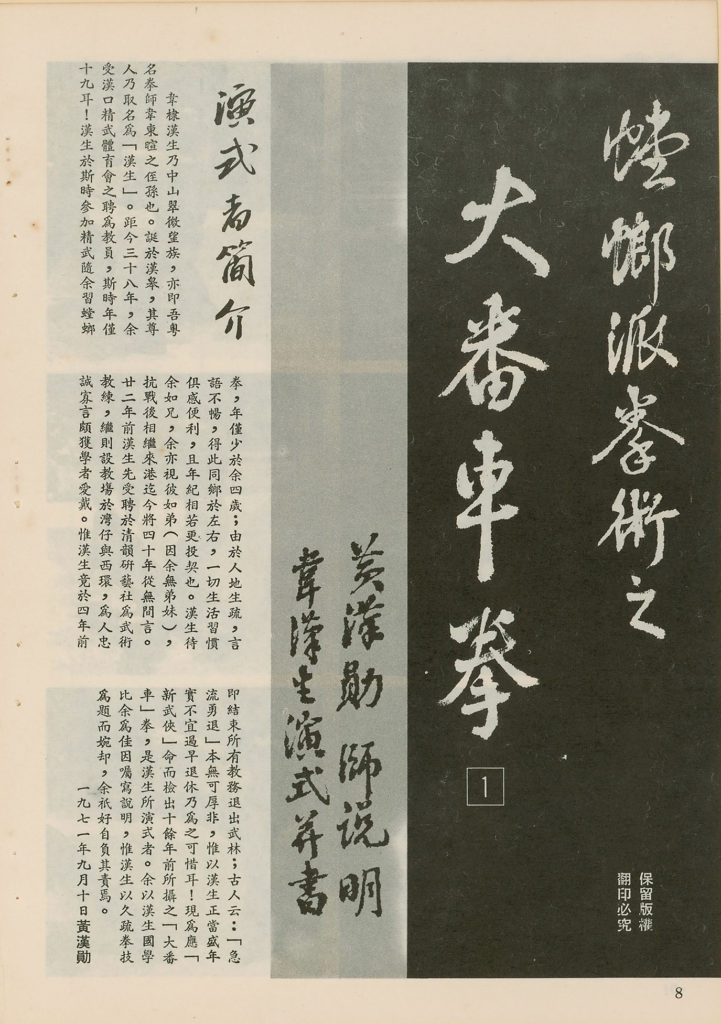 螳螂派拳術之
大番車拳
1
保留版權
翻印必究
黃漢勛師說明
韋漢生演式并書
演式者簡介
韋棣漢生乃中山翠微望族，亦即吾粵
名拳師韋東暄之侄孫也。誕於漢皋，其尊
人乃取名爲「漢生」。距今三十八年，余
受漢口精武體育會之聘爲教員，斯時年僅
十九耳！漢生於斯時參加精武隨余習螳螂
拳，年僅少於余四歲；由於人地生疏，言
語不暢，得此同鄉於左右，一切生活習慣
俱感便利，且年紀相若更投契也。漢生待
余如兄，余亦視彼如弟（因余無弟妹），
抗戰後相繼來港迄今將四十年從無間言。
廿二年前漢生先受聘於清韻研藝社爲武術
教練，繼則設教塲於灣仔與西環，爲人忠
誠寡言頗獲學者愛戴。惟漢生竟於四年前
即結束所有教務退出武林；古人云：「急
流勇退」本無可厚非，惟以漢生正當盛年
實不宜過早退休乃爲之可惜耳！現爲應「
新武俠」命而檢出十餘年前所攝之「大番
車」拳，是漢生所演式者。余以漢生國學
比余爲佳因囑寫說明，惟漢生以久疏拳技
爲題而婉却，余祇好自負其責焉。
一九七一年九月十日黃漢勛
8